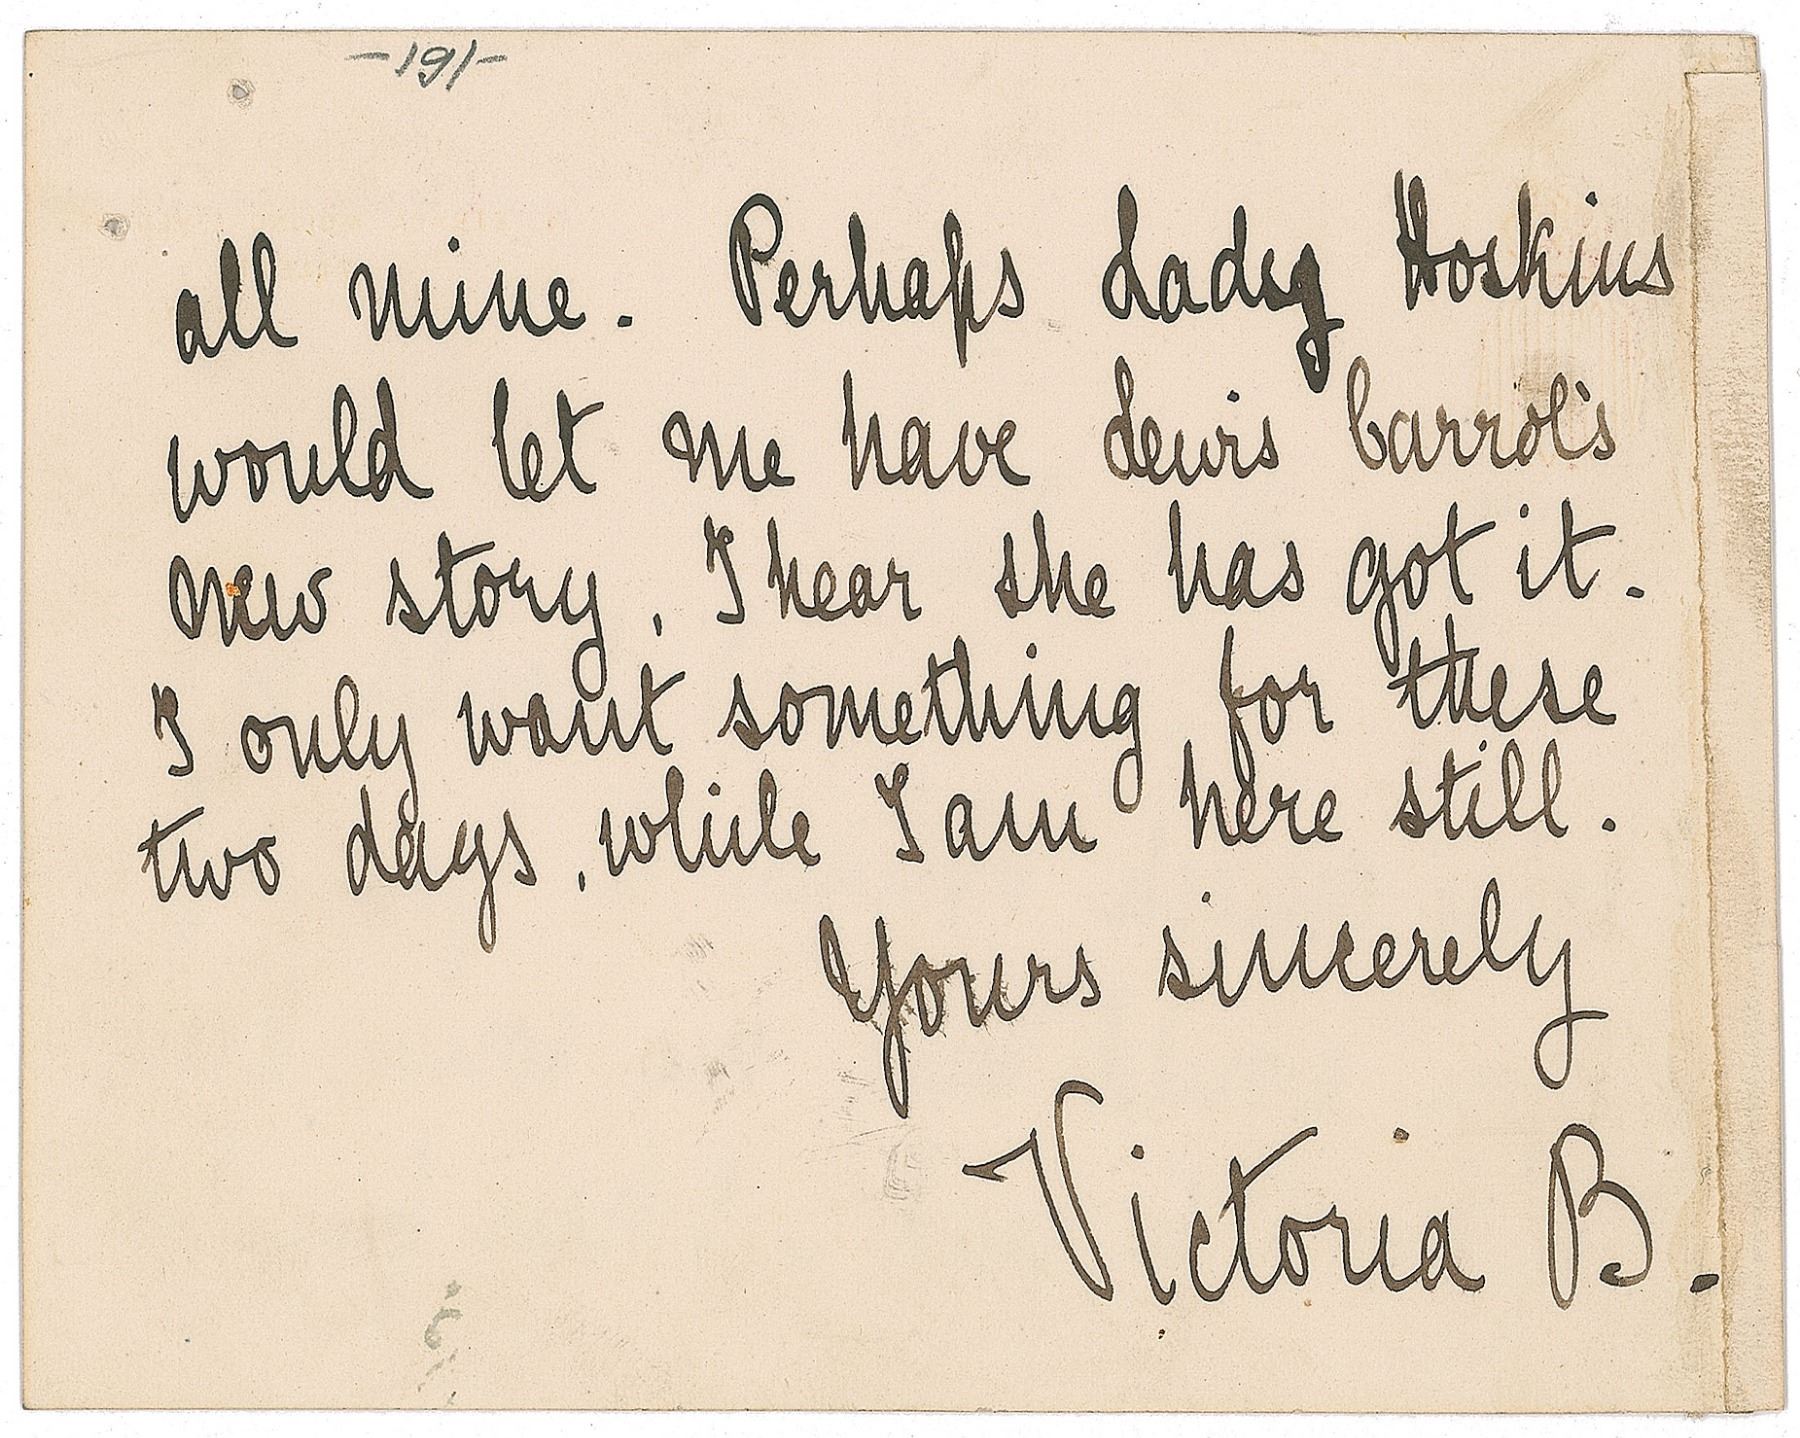 -191-
all mine. Perhaps Lady Hoskins
would let me have Lewis Carrol's
new story, I hear she has got it.
I only want something for these
two days, while I am here still.
Yours sincerely
Victoria B.